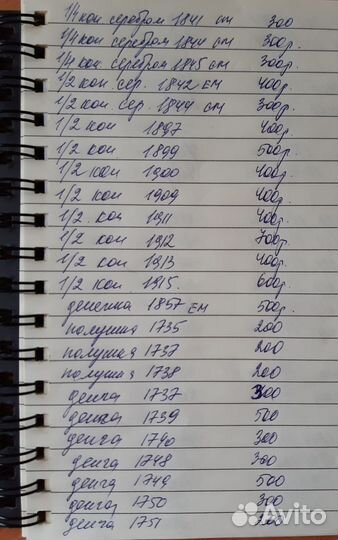 1/4 коп серебром 1841 см 300
1/4 коп серебром 1844 см 300р.
1/4 коп. серебром 1845 см 300р.
1/2 коп. сер. 1842 ем 400р.
1/2 коп. сер. 1844 см 300р.
1/2 коп 1897 400р.
1/2 коп 1899 500р.
1/2 коп 1900 400р.
1/2 коп 1909 400р.
1/2 коп 1911 400р.
1/2 коп 1912 700р.
1/2 коп 1913 400р.
1/2 коп 1915. 600р.
денежка 1857 ем 500р.
полушка 1735 200
полушка 1737 200
полушка 1738 200
денга 1737 300
денга 1739 500
денга 1740 300
денга 1748 300
денга 1749 500
денга 1750 300
денга 1751
Avito